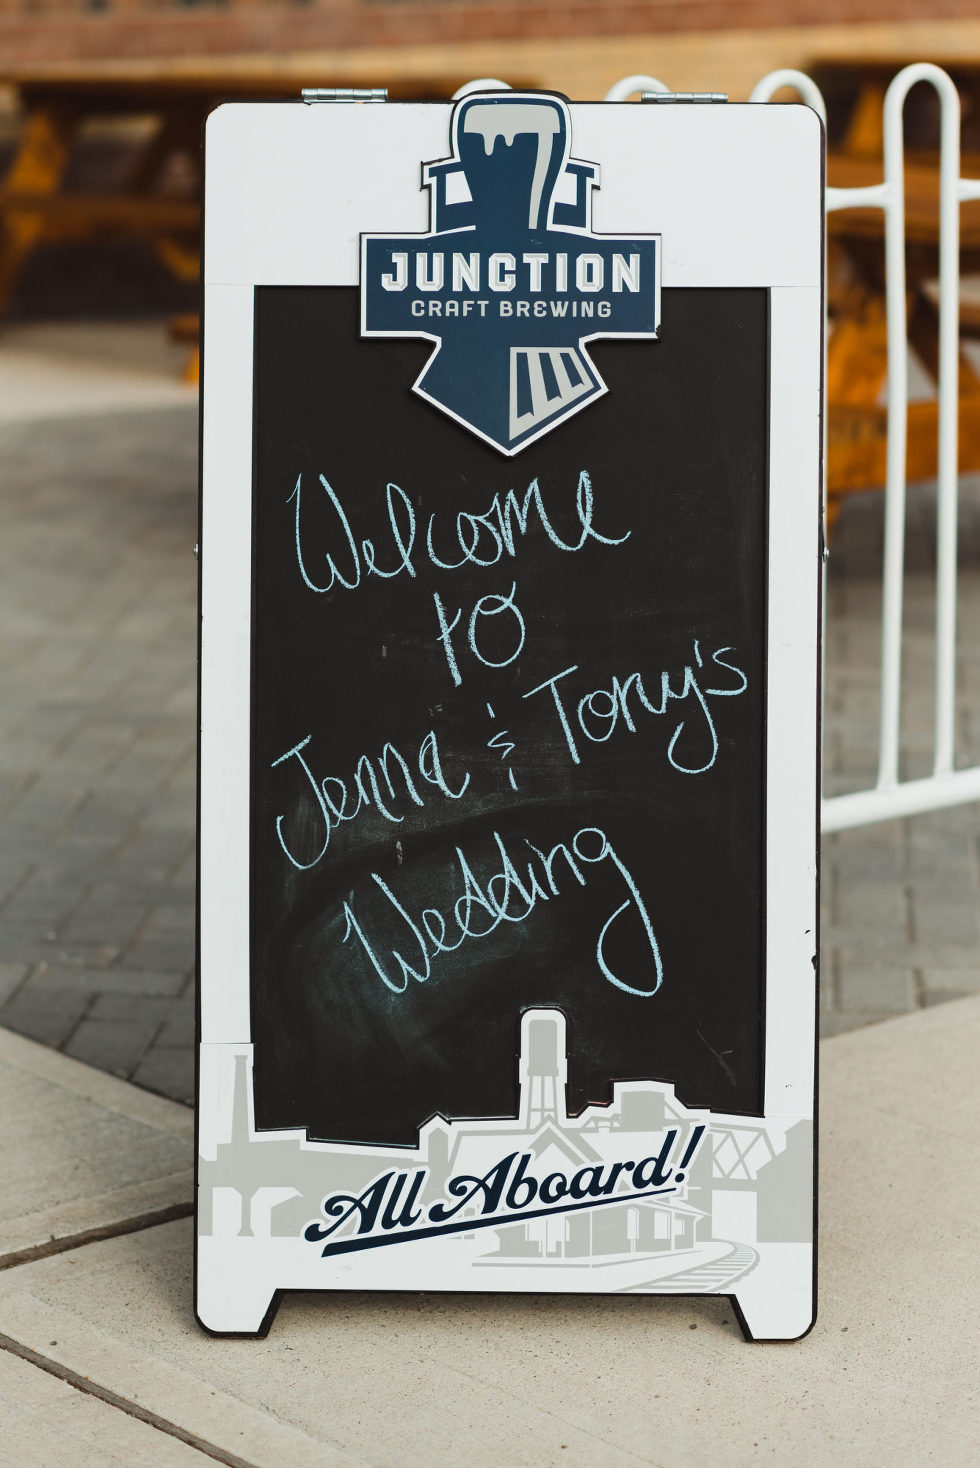 JUNCTION
CRAFT BREWING
Welcome
to
Jenna & Tony's
Wedding
All Aboard!